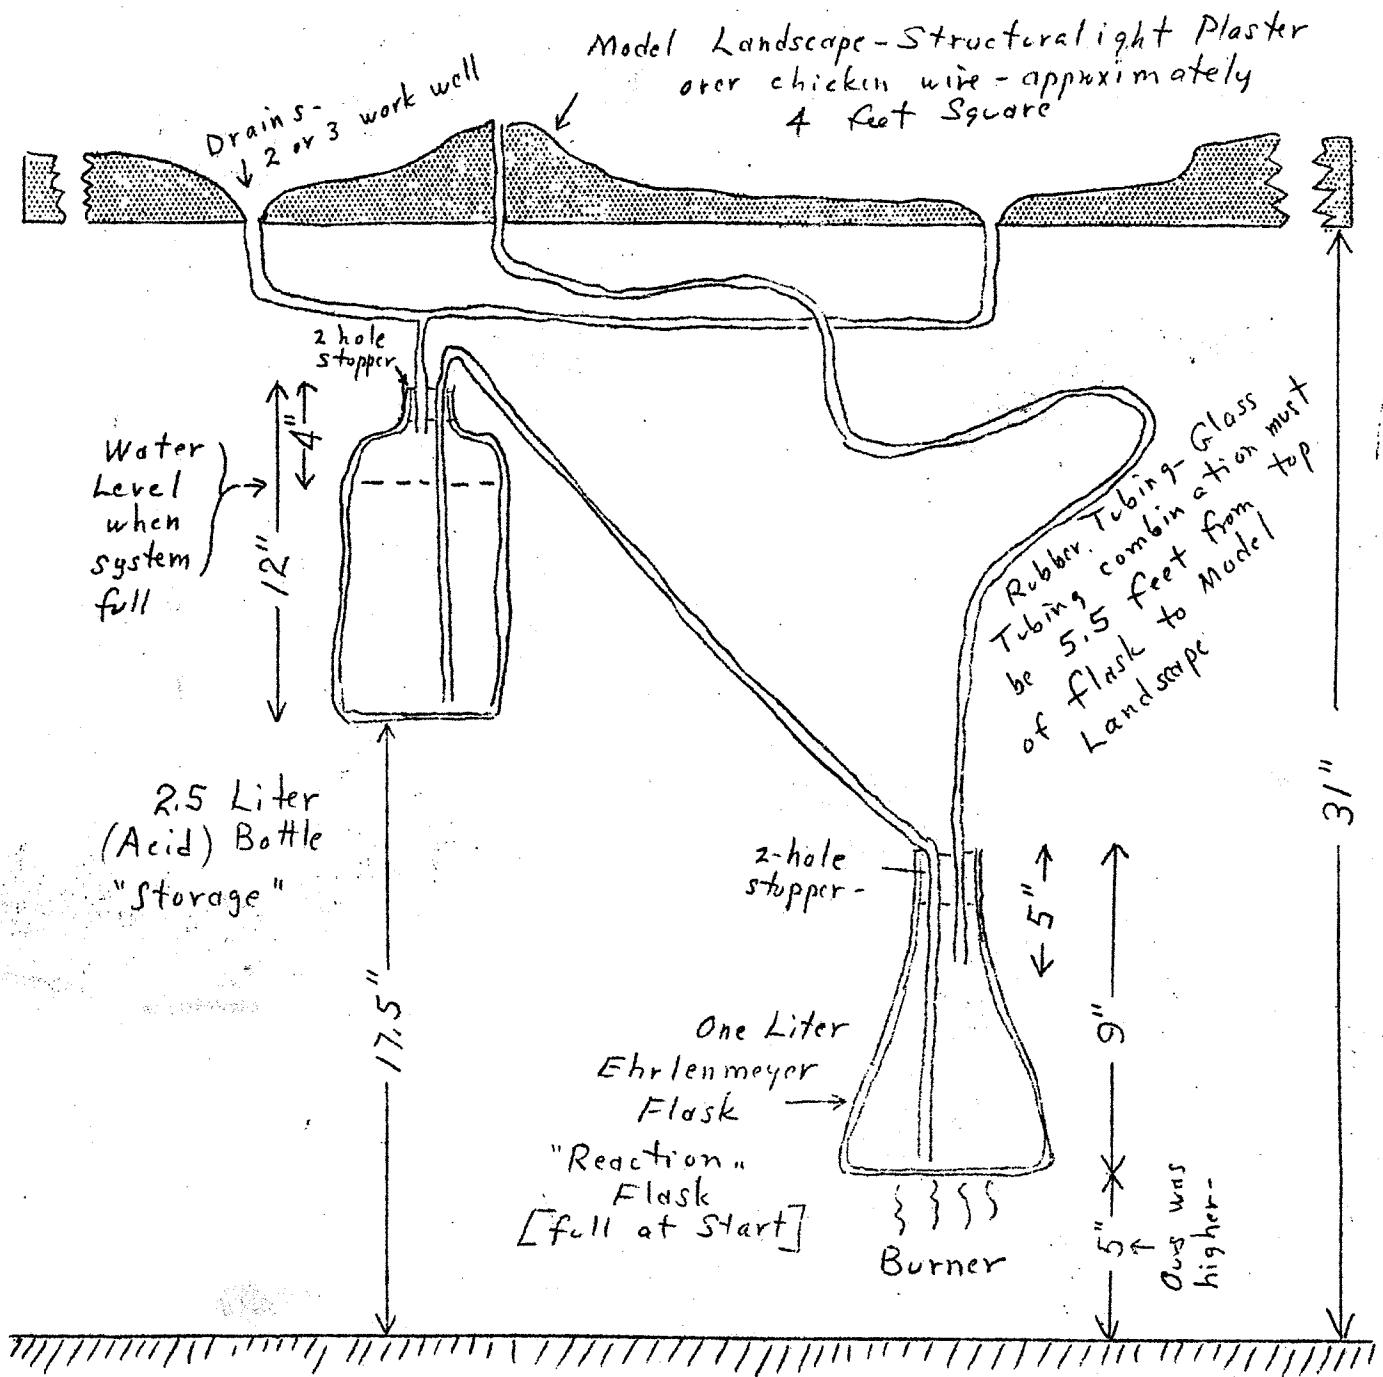 Model Landscape - Structuralight Plaster
over chicken wire - approximately
4 feet Square
Drains-
2 or 3 work well
2 hole
stopper
4"
12"
Water
Level
when
system
full
Rubber Tubing - Glass
Tubing combination must
be 5.5 feet from top
of flask to Model
Landscape
2.5 Liter
(Acid) Bottle
"Storage"
17.5"
31"
2-hole
stopper-
5"
9"
One Liter
Ehrlenmeyer
Flask
"Reaction"
Flask
[full at Start]
Burner
5"
Ours was
higher-